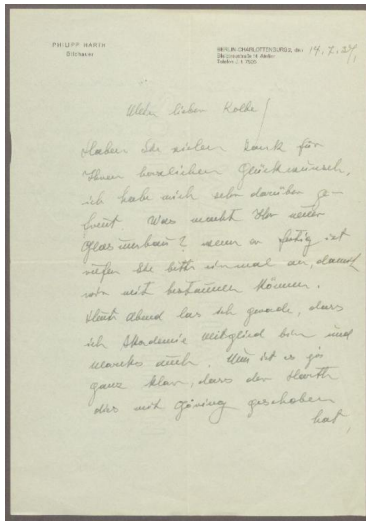 PHILIPP HARTH
Bildhauer
BERLIN-CHARLOTTENBURG 2, den 14.7.27,
Mein lieber Kolbe!
Haben Sie vielen Dank für
Ihren herzlichen Glückwunsch,
ich habe mich sehr darüber ge-
freut. Was macht Ihr neuer
Glasumbau? wenn er fertig ist
rufen Sie bitte einmal an, damit
wir mit bestaunen können.
Heut Abend las ich gerade, dass
ich Akademie Mitglied bin und
Marcks auch. Nun ist es ja
ganz klar, dass der Harth
das mit Göring geschoben
hat,